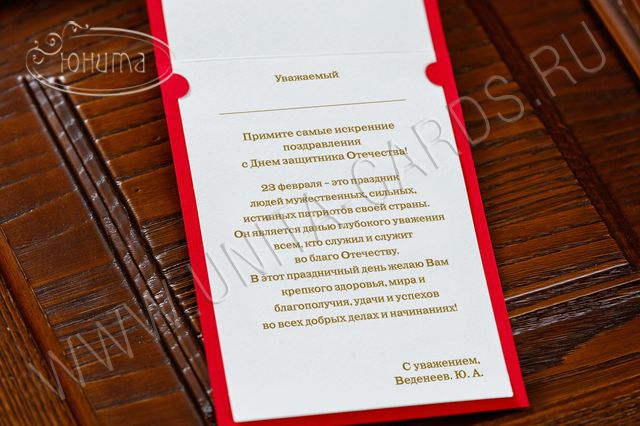 Юнита
Уважаемый
Примите самые искренние
поздравления
с Днем защитника Отечества!
23 февраля – это праздник
людей мужественных, сильных,
истинных патриотов своей страны.
Он является данью глубокого уважения
всем, кто служил и служит
во благо Отечеству.
В этот праздничный день желаю Вам
крепкого здоровья, мира и
благополучия, удачи и успехов
во всех добрых делах и начинаниях!
С уважением,
Веденеев. Ю. А.
WWW.UNITA-CARDS.RU